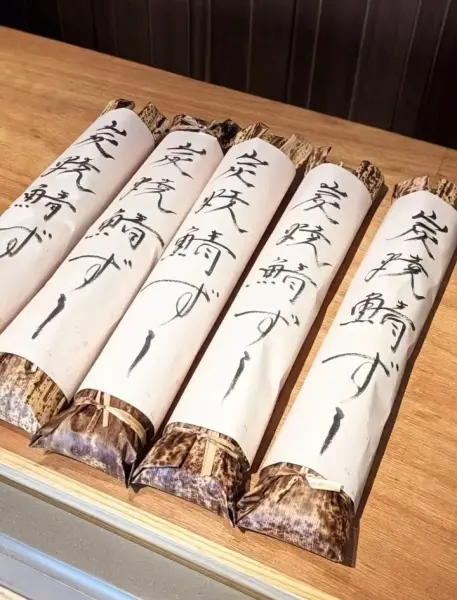 炭焼鯖ず
炭焼鯖ずし
炭焼鯖ずし
炭焼鯖ずし
炭焼鯖ずし